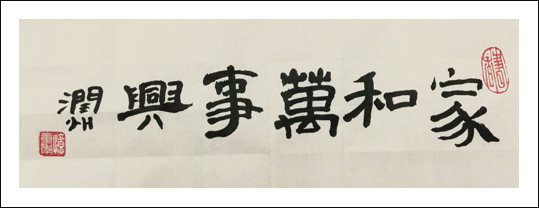 家和萬事興
潤州